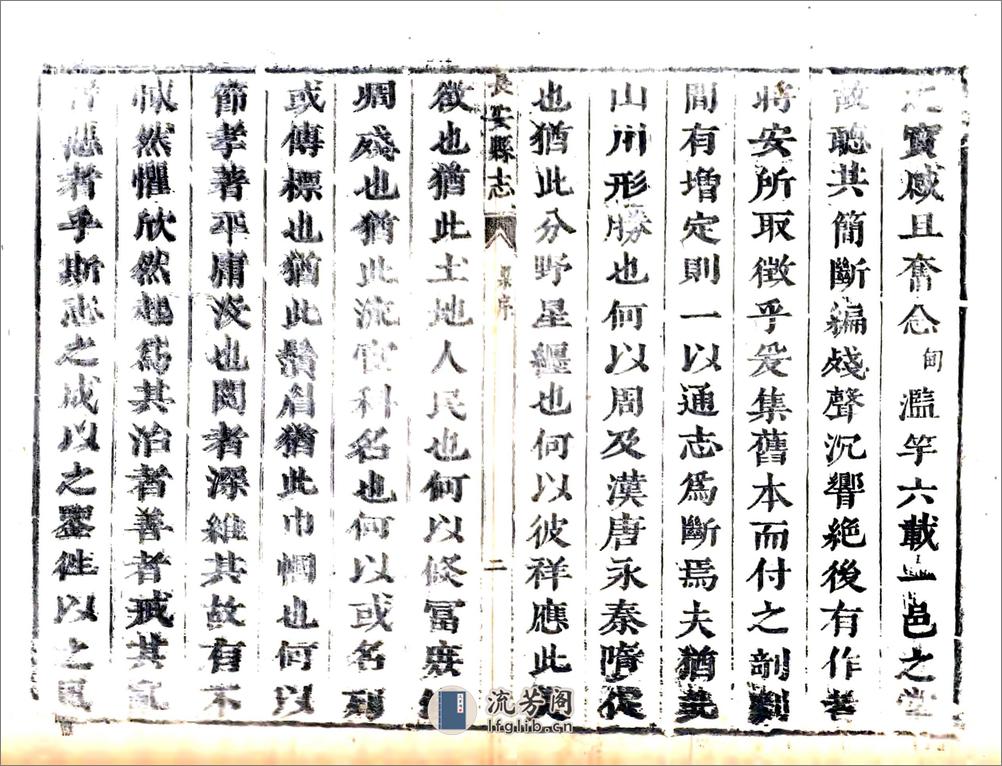 之寶咸且奮念甸濫竽六載一邑之堂
故聽其簡斷編殘聲沉響絶後有作者
將安所取徵乎爰集舊本而付之剞劂
間有增定則一以通志爲斷焉夫猶是
山川形勝也何以周及漢唐永秦隋促
也猶此分野星纏也何以彼祥應此
長安縣志 序 二
徵也猶此土地人民也何以倏富庶
凋殘也猶此流官科名也何以或名
或傳標也猶此鬚眉猶此巾幗也何以
節孝著平庸沒也閱者深維其故有不
惕然懼欣然起爲其治者善者戒其
者惡者乎斯志之成以之鑒徃以之
流芳阁
lfglib.cn